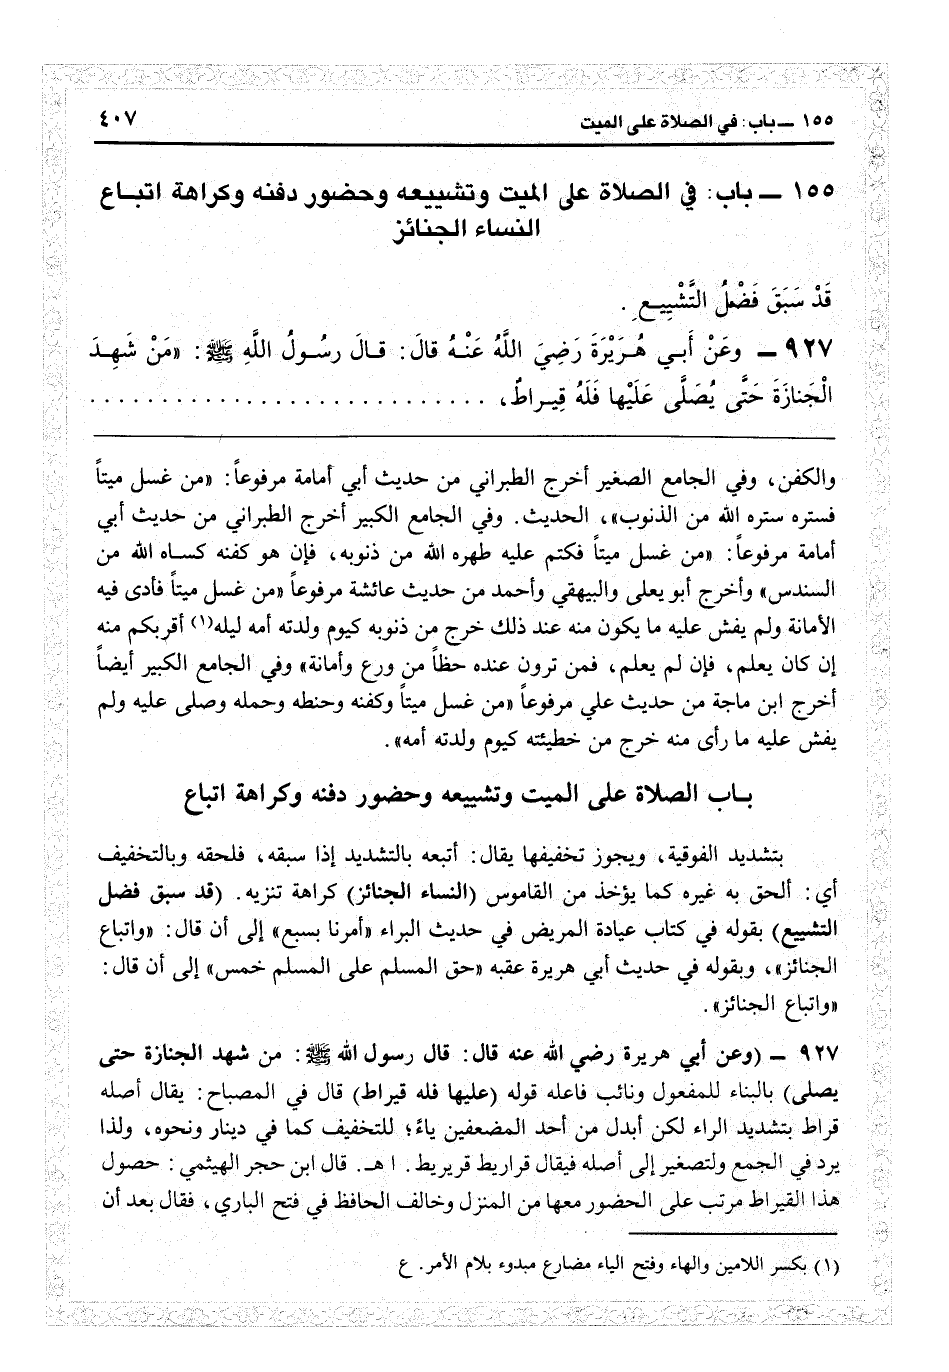 ١٥٥ ــ باب: في الصلاة على الميت
٤٠٧
١٥٥ ــ باب: في الصلاة على الميت وتشييعه وحضور دفنه وكراهة اتباع
النساء الجنائز
قَدْ سَبَقَ فَضْلُ التَّشْيِيعِ.
٩٢٧ ــ وعَنْ أَبي هُرَيْرَةَ رَضِيَ اللَّهُ عَنْهُ قالَ: قالَ رسُولُ اللَّهِ ﷺ: «مَنْ شَهِدَ
الْجَنازَةَ حَتَّى يُصَلَّى عَلَيْها فَلَهُ قِيراطٌ، . . . . . . . . . . . . . . . . . . . . . . . . . . . .
والكفن، وفي الجامع الصغير أخرج الطبراني من حديث أبي أمامة مرفوعاً: «من غسل ميتاً
فستره ستره الله من الذنوب»، الحديث. وفي الجامع الكبير أخرج الطبراني من حديث أبي
أمامة مرفوعاً: «من غسل ميتاً فكتم عليه طهره الله من ذنوبه، فإن هو كفنه كساه الله من
السندس» وأخرج أبو يعلى والبيهقي وأحمد من حديث عائشة مرفوعاً «من غسل ميتاً فأدى فيه
الأمانة ولم يفش عليه ما يكون منه عند ذلك خرج من ذنوبه كيوم ولدته أمه ليله(١) أقربكم منه
إن كان يعلم، فإن لم يعلم، فمن ترون عنده حظاً من ورع وأمانة» وفي الجامع الكبير أيضاً
أخرج ابن ماجة من حديث علي مرفوعاً «من غسل ميتاً وكفنه وحنطه وحمله وصلى عليه ولم
يفش عليه ما رأى منه خرج من خطيئته كيوم ولدته أمه».
باب الصلاة على الميت وتشييعه وحضور دفنه وكراهة اتباع
بتشديد الفوقية، ويجوز تخفيفها يقال: أتبعه بالتشديد إذا سبقه، فلحقه وبالتخفيف
أي: ألحق به غيره كما يؤخذ من القاموس (النساء الجنائز) كراهة تنزيه. (قد سبق فضل
التشييع) بقوله في كتاب عيادة المريض في حديث البراء «أمرنا بسبع» إلى أن قال: «واتباع
الجنائز»، وبقوله في حديث أبي هريرة عقبه «حق المسلم على المسلم خمس» إلى أن قال:
«واتباع الجنائز».
٩٢٧ ــ (وعن أبي هريرة رضي الله عنه قال: قال رسول الله ﷺ: من شهد الجنازة حتى
يصلى) بالبناء للمفعول ونائب فاعله قوله (عليها فله قيراط) قال في المصباح: يقال أصله
قراط بتشديد الراء لكن أبدل من أحد المضعفين ياءً؛ للتخفيف كما في دينار ونحوه، ولذا
يرد في الجمع ولتصغير إلى أصله فيقال قراريط قريريط. اهـ. قال ابن حجر الهيثمي: حصول
هذا القيراط مرتب على الحضور معها من المنزل وخالف الحافظ في فتح الباري، فقال بعد أن
(١) بكسر اللامين والهاء وفتح الياء مضارع مبدوء بلام الأمر. ع